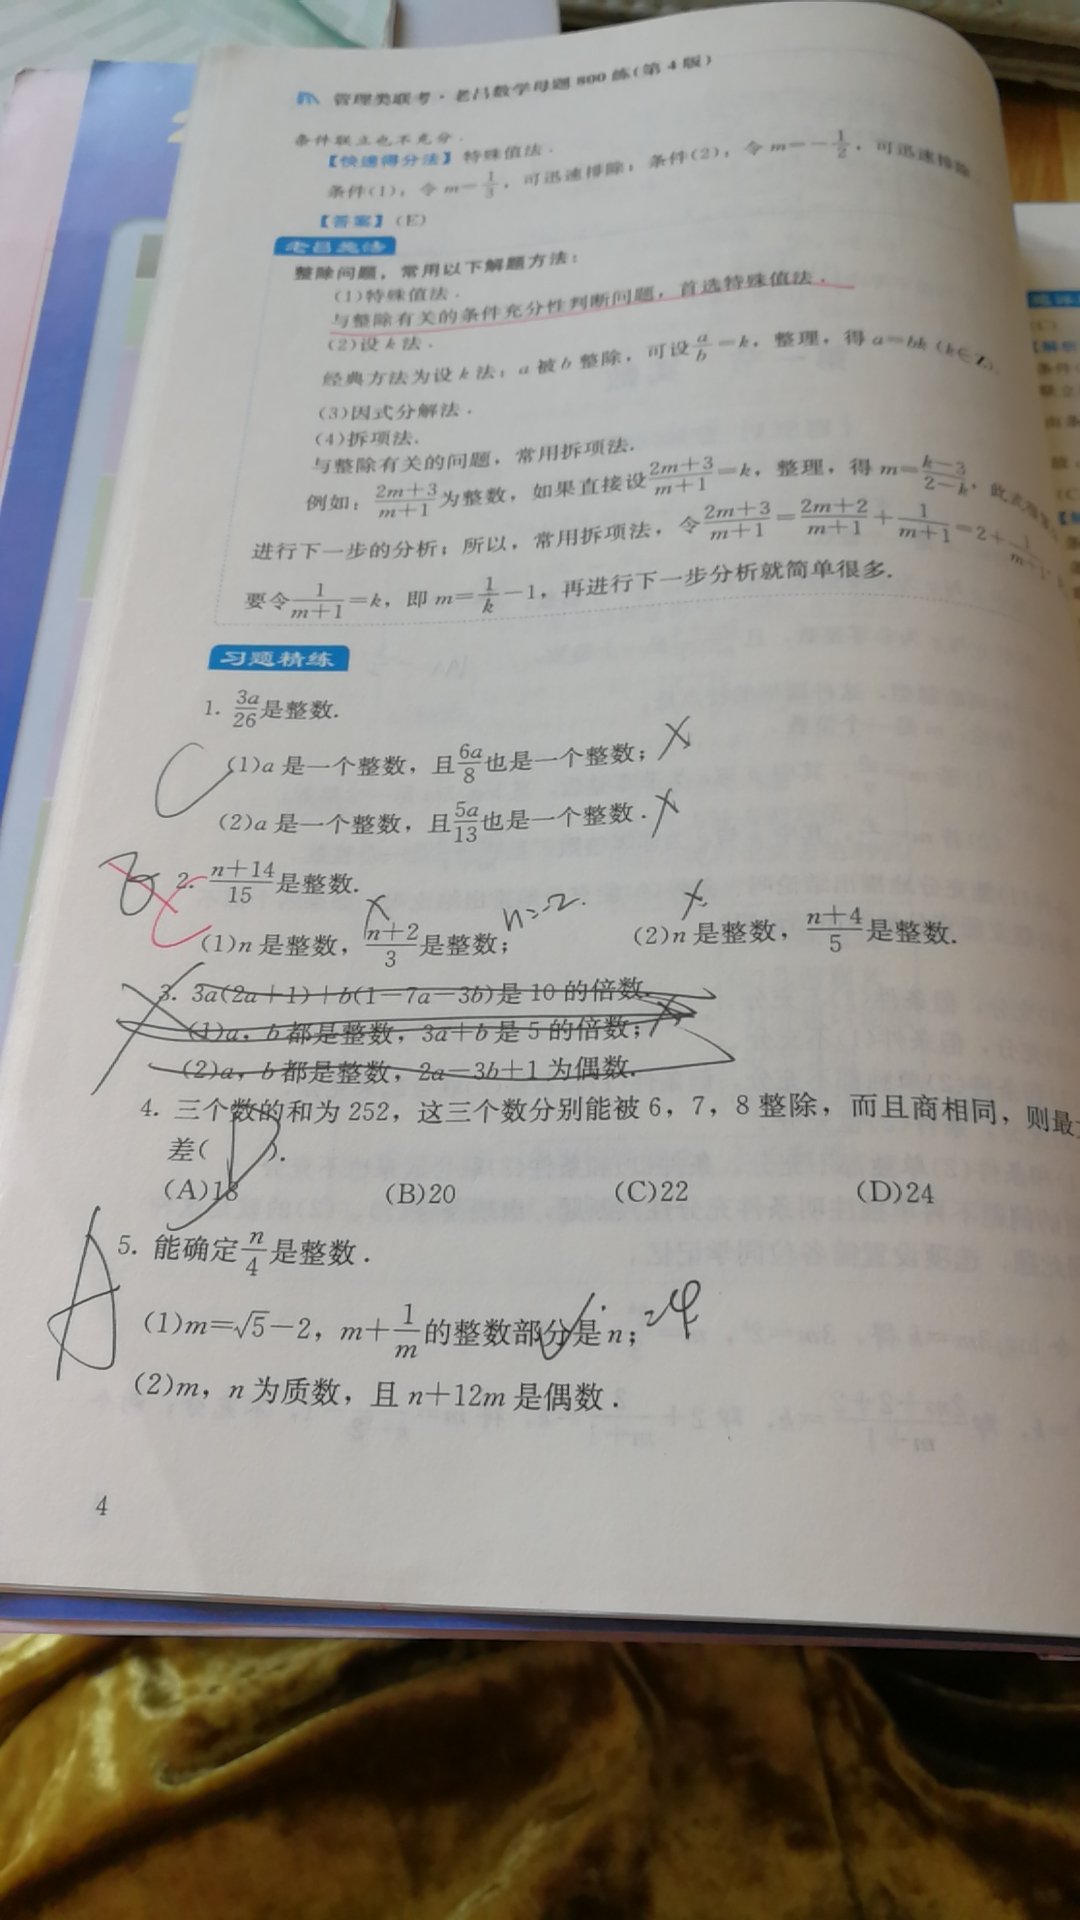 管理类联考·老吕数学母题800练(第4版)
条件联立也不充分.
【快速得分法】特殊值法.
条件(1),令m=1/3,可迅速排除;条件(2),令m=-1/2,可迅速排除
【答案】(E)
老吕施法
整除问题,常用以下解题方法:
(1)特殊值法.
与整除有关的条件充分性判断问题,首选特殊值法.
(2)设k法.
经典方法为设k法:a被b整除,可设a/b=k,整理,得a=bk(k∈Z).
(3)因式分解法.
(4)拆项法.
与整除有关的问题,常用拆项法.
例如:(2m+3)/(m+1)为整数,如果直接设(2m+3)/(m+1)=k,整理,得m=(k-3)/(2-k),此式
进行下一步的分析;所以,常用拆项法,令(2m+3)/(m+1)=(2m+2)/(m+1)+1/(m+1)=2+1/(m+1),
要令1/(m+1)=k,即m=1/k-1,再进行下一步分析就简单很多.
习题精练
1. 3a/26是整数.
C (1)a是一个整数,且6a/8也是一个整数; ×
(2)a是一个整数,且5a/13也是一个整数. ×
2. (n+14)/15是整数.
C (1)n是整数,(n+2)/3是整数; × n=-2. (2)n是整数,(n+4)/5是整数. ×
3. 3a(2a+1)+b(1-7a-3b)是10的倍数.
(1)a,b都是整数,3a+b是5的倍数; ×
(2)a,b都是整数,2a-3b+1为偶数.
4. 三个数的和为252,这三个数分别能被6,7,8整除,而且商相同,则最
差( D ).
(A)18 (B)20 (C)22 (D)24
A 5. 能确定n/4是整数.
(1)m=√5-2,m+1/m的整数部分是n; =4
(2)m,n为质数,且n+12m是偶数.
4